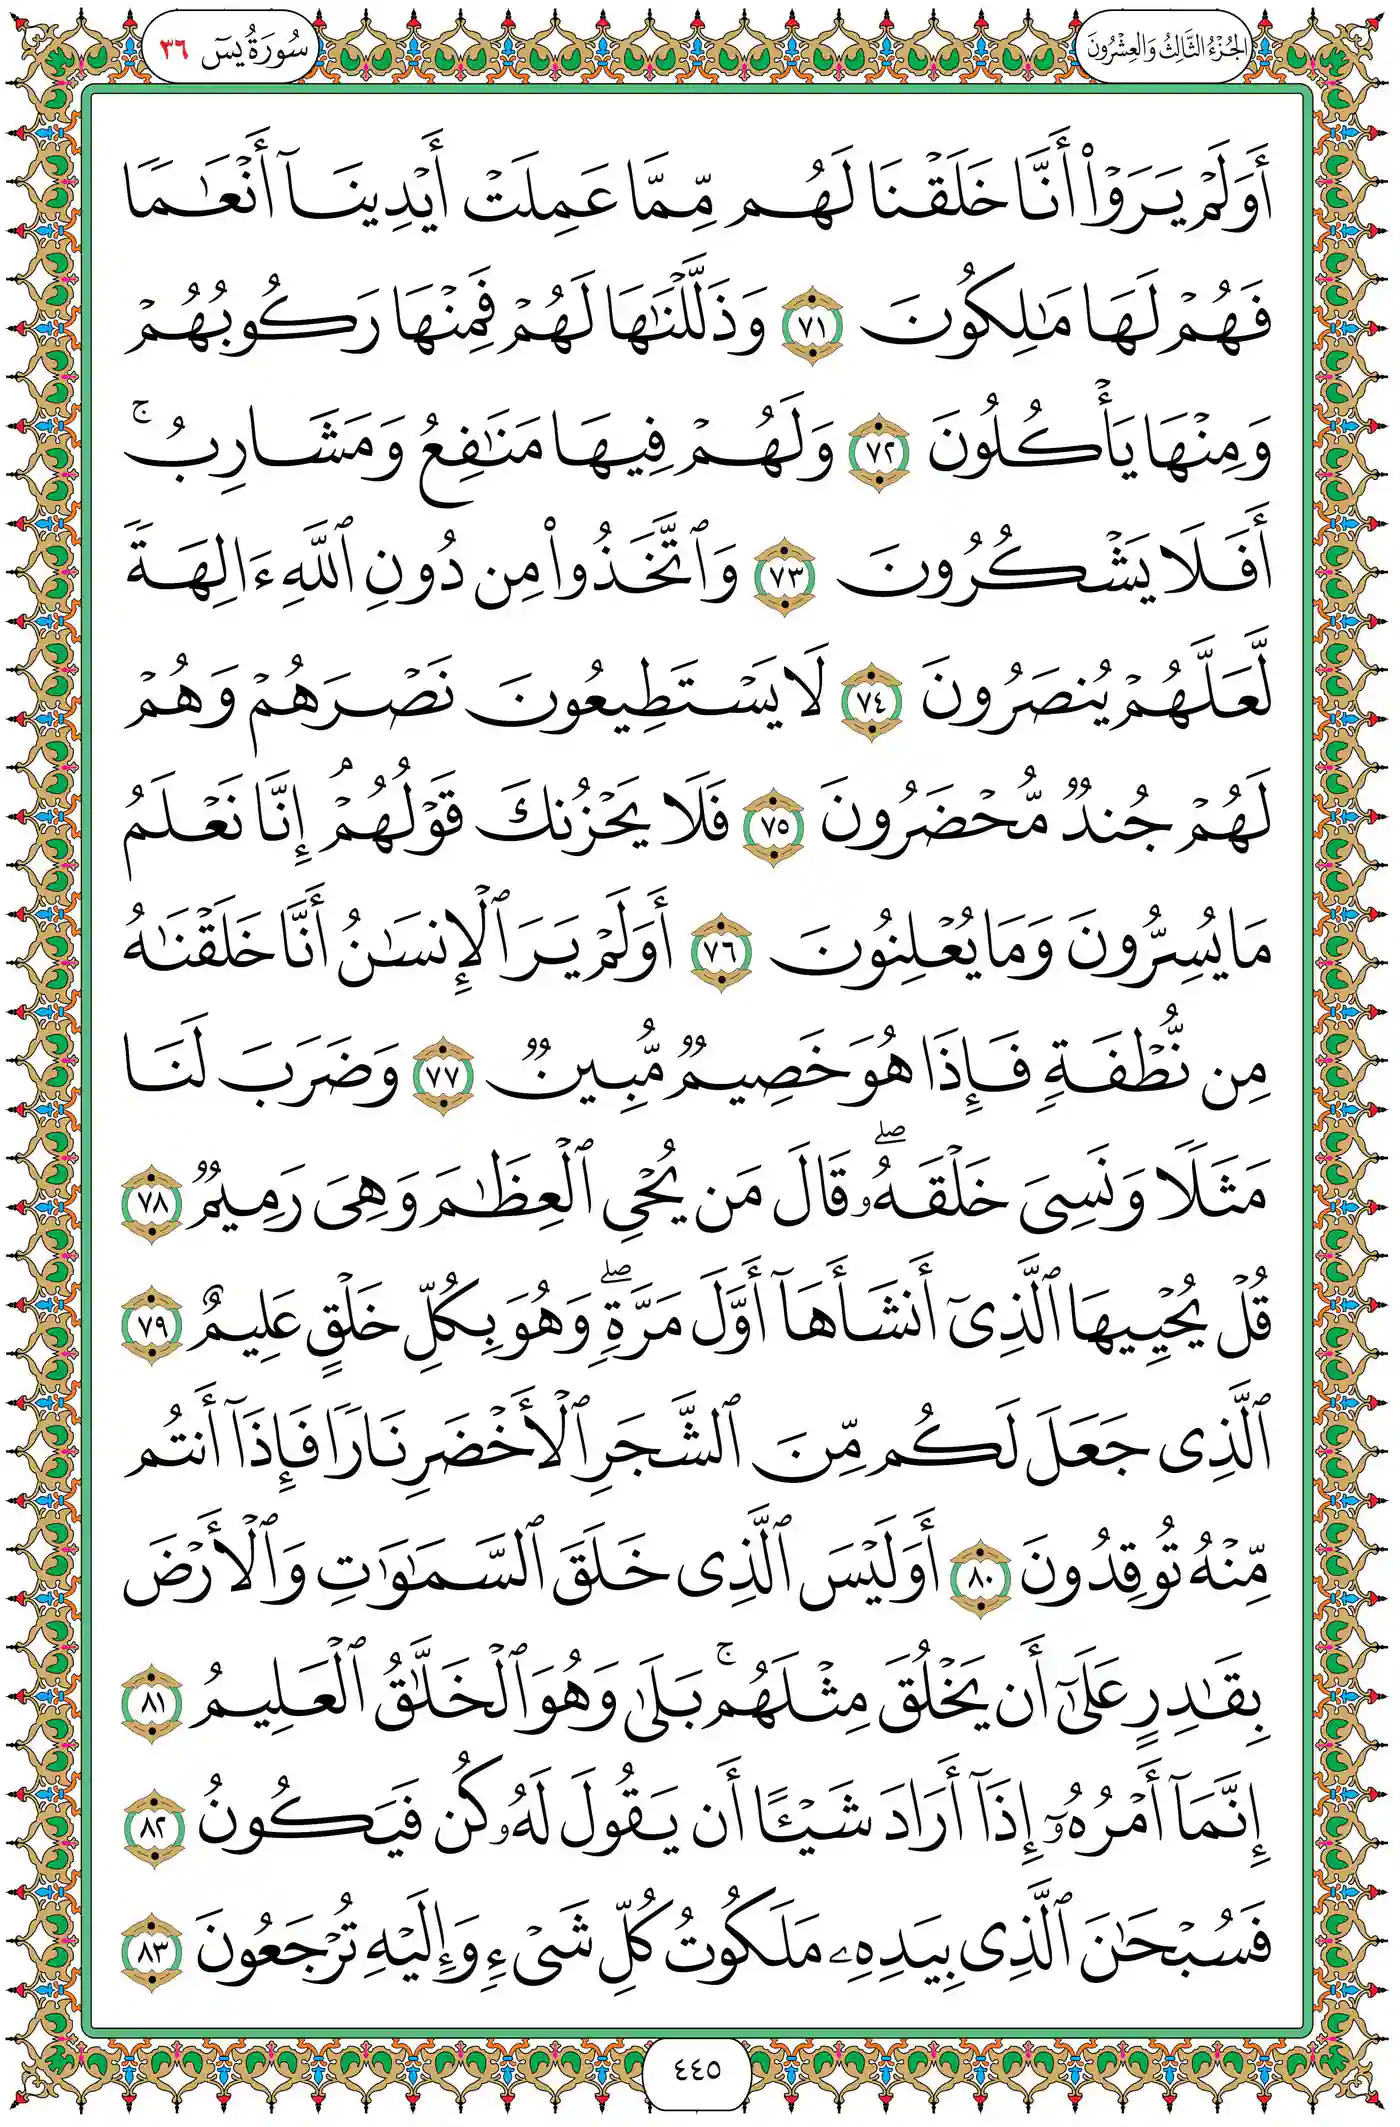 الجُزْءُ الثَّالِثُ وَالعِشْرُونَ
سُورَةُ يسٓ ٣٦
أَوَلَمْ يَرَوْا۟ أَنَّا خَلَقْنَا لَهُم مِّمَّا عَمِلَتْ أَيْدِينَآ أَنْعَـٰمًا
فَهُمْ لَهَا مَـٰلِكُونَ ٧١ وَذَلَّلْنَـٰهَا لَهُمْ فَمِنْهَا رَكُوبُهُمْ
وَمِنْهَا يَأْكُلُونَ ٧٢ وَلَهُمْ فِيهَا مَنَـٰفِعُ وَمَشَارِبُ ۚ
أَفَلَا يَشْكُرُونَ ٧٣ وَٱتَّخَذُوا۟ مِن دُونِ ٱللَّهِ ءَالِهَةً
لَّعَلَّهُمْ يُنصَرُونَ ٧٤ لَا يَسْتَطِيعُونَ نَصْرَهُمْ وَهُمْ
لَهُمْ جُندٌ مُّحْضَرُونَ ٧٥ فَلَا يَحْزُنكَ قَوْلُهُمْ ۘ إِنَّا نَعْلَمُ
مَا يُسِرُّونَ وَمَا يُعْلِنُونَ ٧٦ أَوَلَمْ يَرَ ٱلْإِنسَـٰنُ أَنَّا خَلَقْنَـٰهُ
مِن نُّطْفَةٍ فَإِذَا هُوَ خَصِيمٌ مُّبِينٌ ٧٧ وَضَرَبَ لَنَا
مَثَلًا وَنَسِىَ خَلْقَهُۥ ۖ قَالَ مَن يُحْىِ ٱلْعِظَـٰمَ وَهِىَ رَمِيمٌ ٧٨
قُلْ يُحْيِيهَا ٱلَّذِىٓ أَنشَأَهَآ أَوَّلَ مَرَّةٍ ۖ وَهُوَ بِكُلِّ خَلْقٍ عَلِيمٌ ٧٩
ٱلَّذِى جَعَلَ لَكُم مِّنَ ٱلشَّجَرِ ٱلْأَخْضَرِ نَارًا فَإِذَآ أَنتُم
مِّنْهُ تُوقِدُونَ ٨٠ أَوَلَيْسَ ٱلَّذِى خَلَقَ ٱلسَّمَـٰوَٰتِ وَٱلْأَرْضَ
بِقَـٰدِرٍ عَلَىٰٓ أَن يَخْلُقَ مِثْلَهُم ۚ بَلَىٰ وَهُوَ ٱلْخَلَّـٰقُ ٱلْعَلِيمُ ٨١
إِنَّمَآ أَمْرُهُۥٓ إِذَآ أَرَادَ شَيْـًٔا أَن يَقُولَ لَهُۥ كُن فَيَكُونُ ٨٢
فَسُبْحَـٰنَ ٱلَّذِى بِيَدِهِۦ مَلَكُوتُ كُلِّ شَىْءٍ وَإِلَيْهِ تُرْجَعُونَ ٨٣
٤٤٥